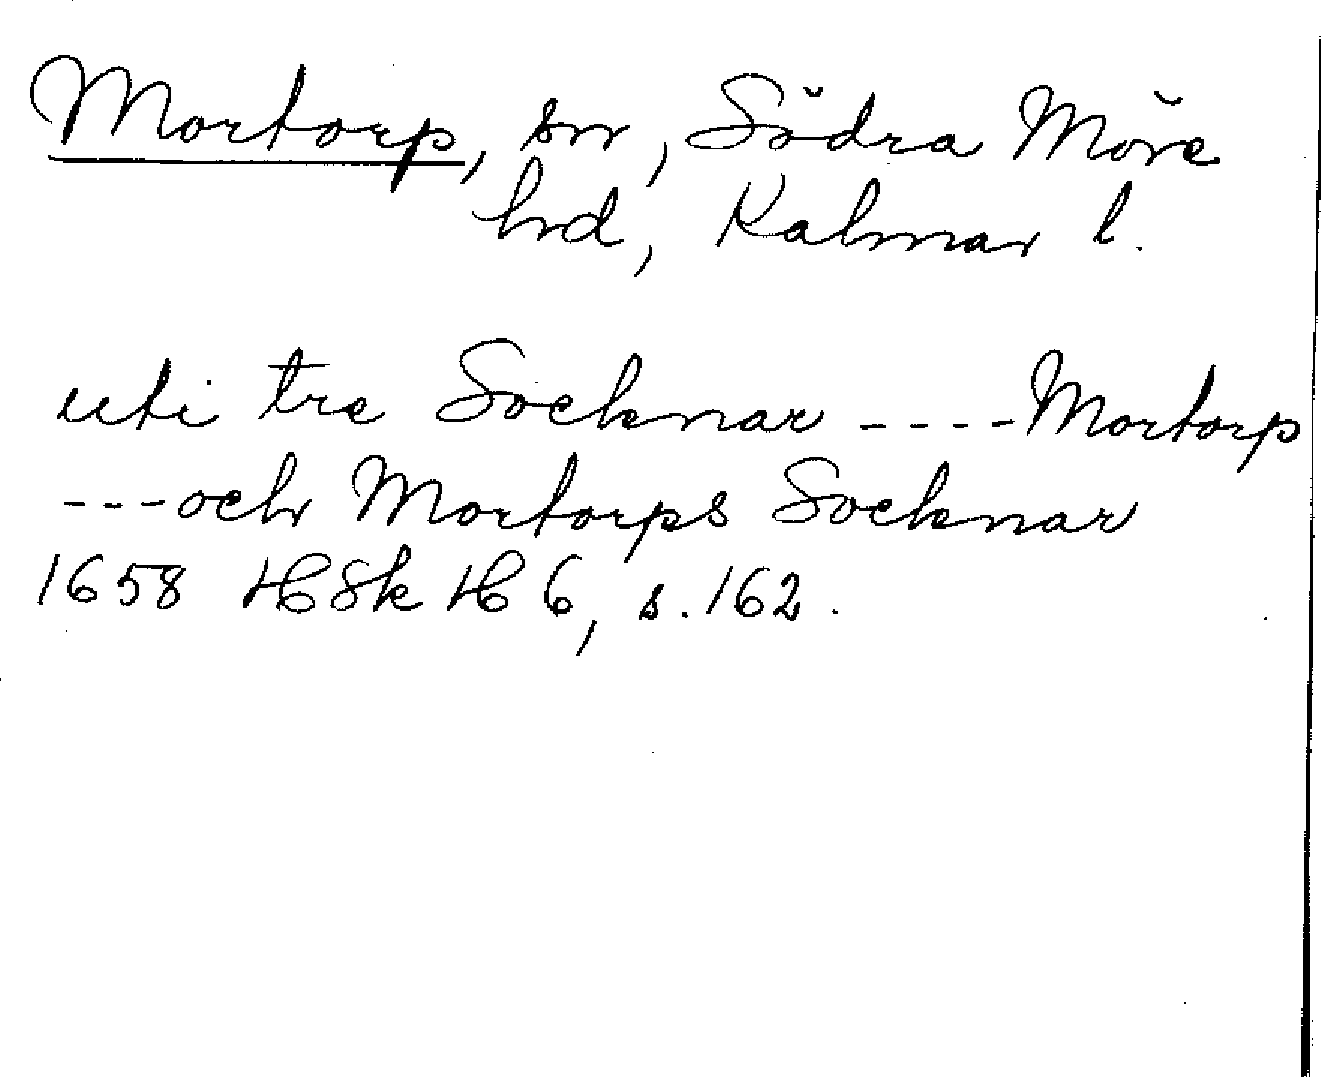 Mortorp, sn, Södra Möre
hd, Kalmar l.
uti tre Socknar ----Mortorp
---och Mortorps Socknar
1658 HSk H 6, s. 162.